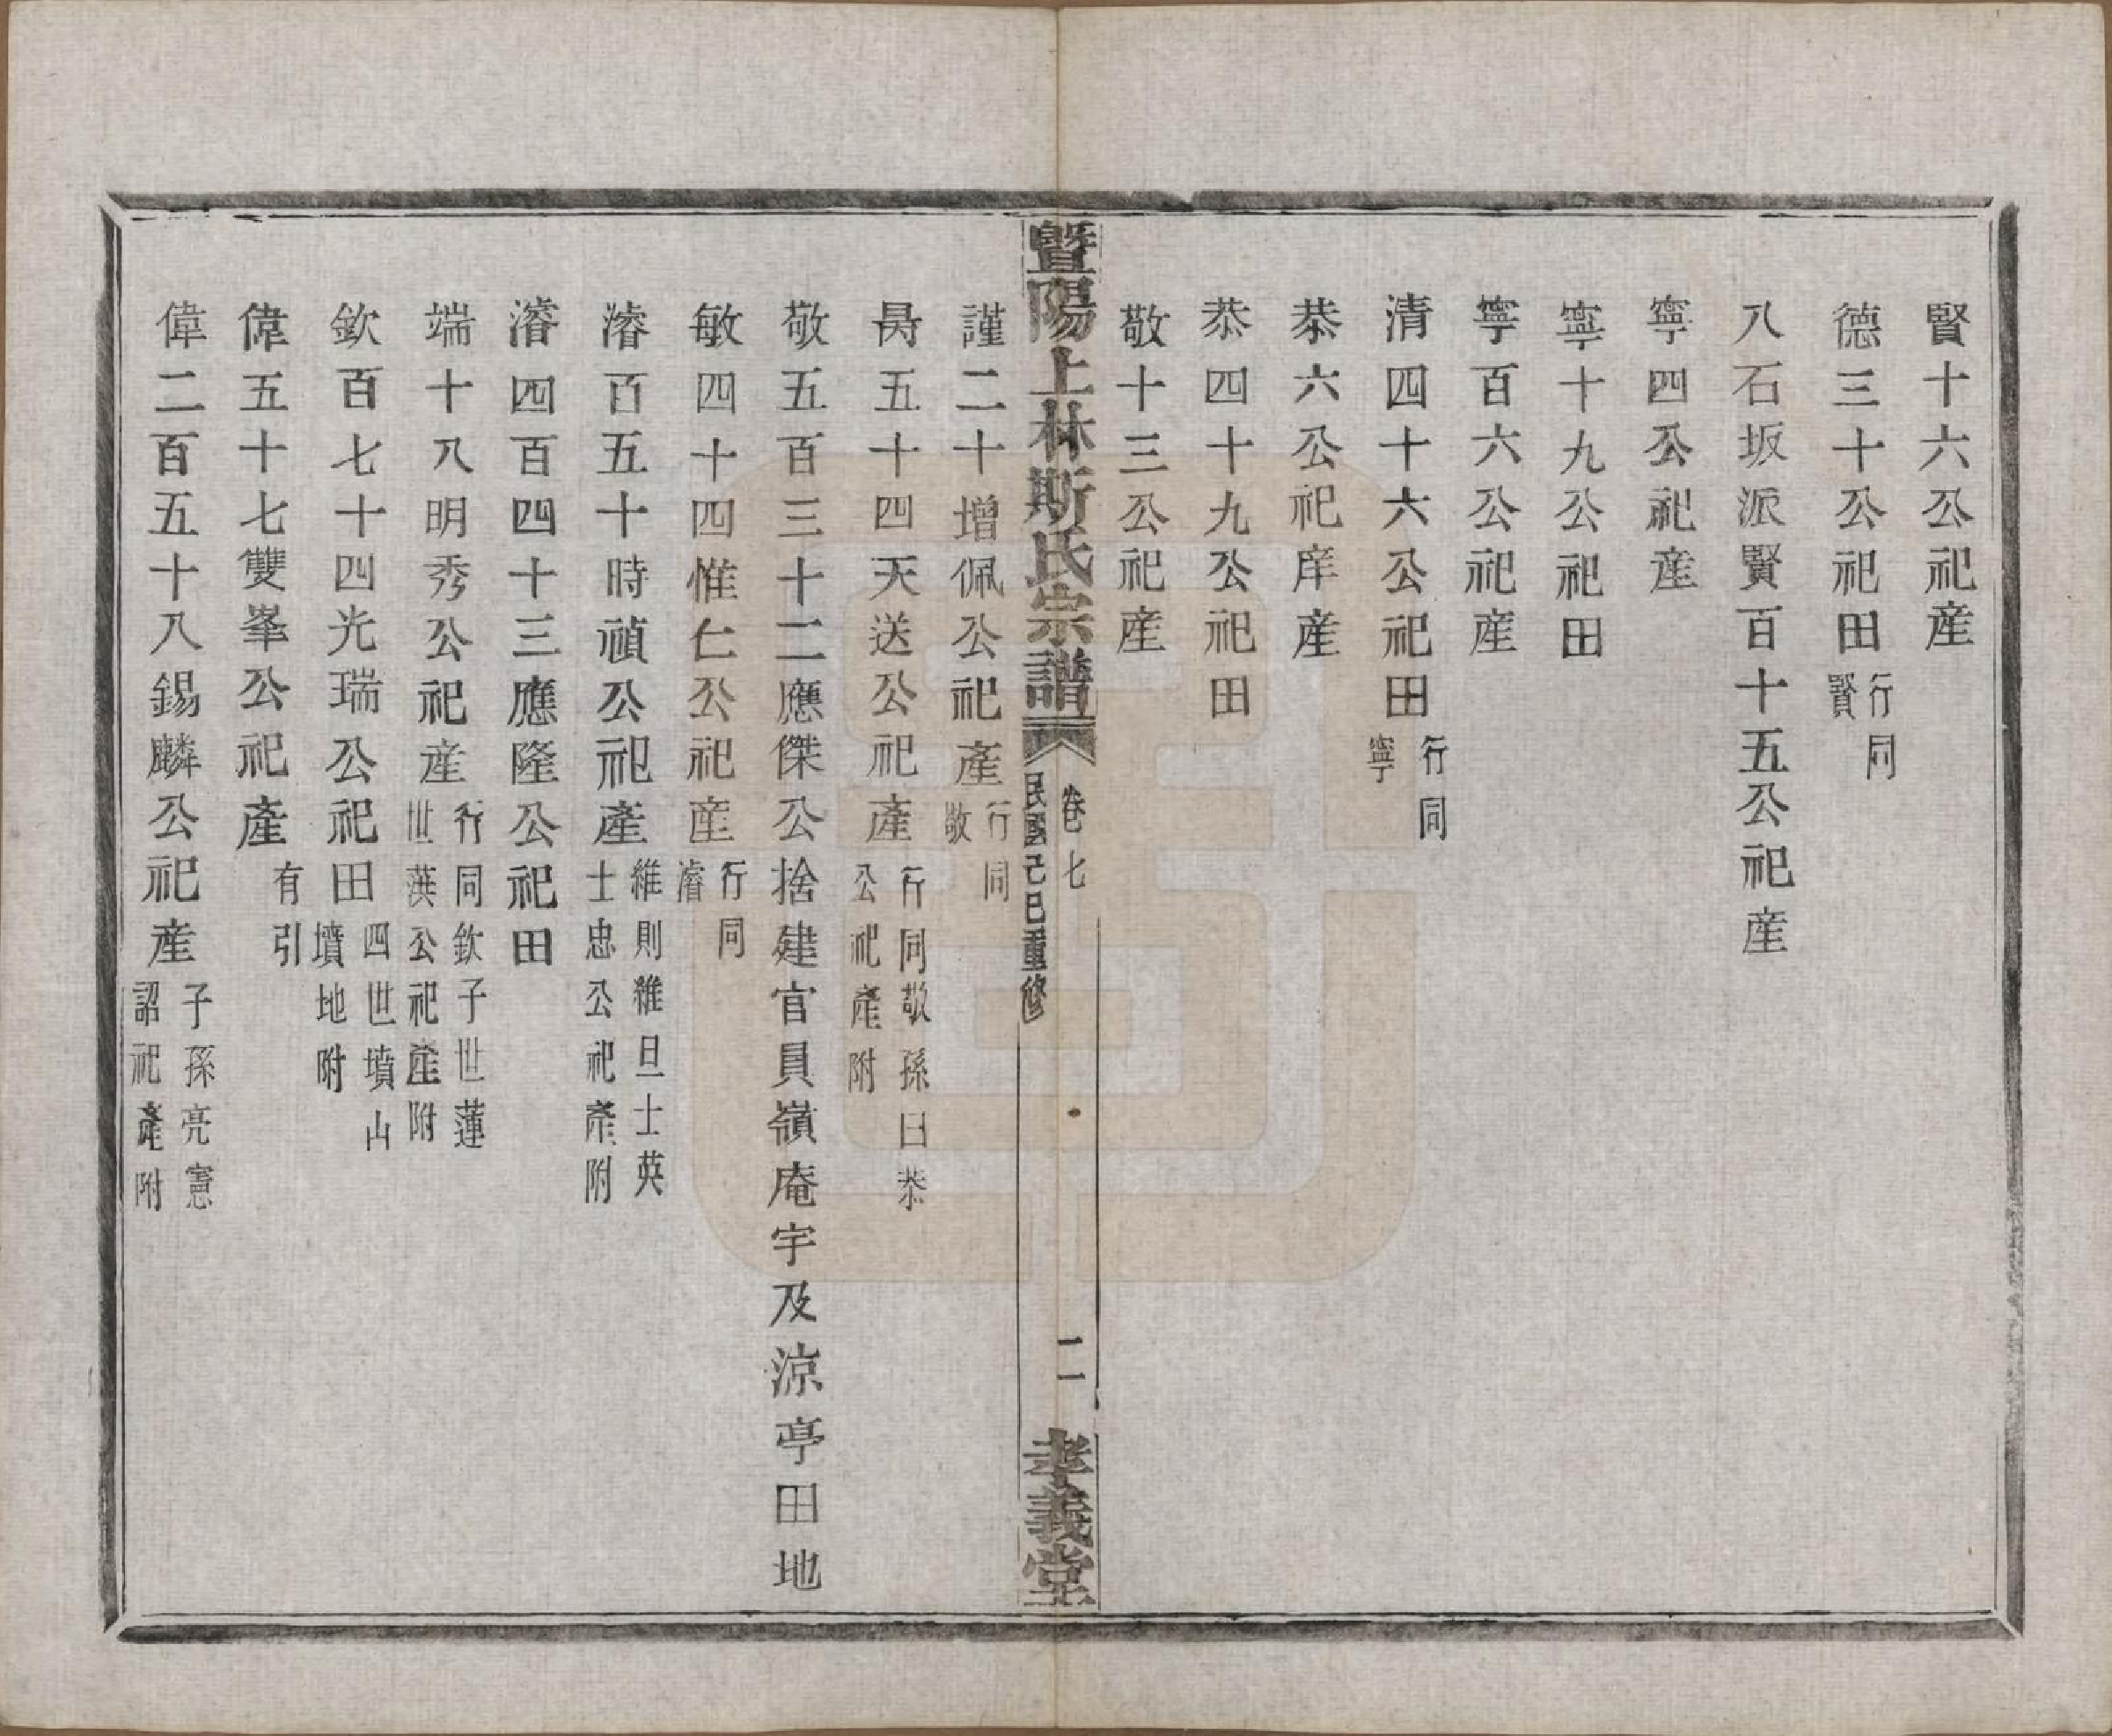 賢十六公祀産
德三十公祀田 行同賢
八石坂派賢百十五公祀産
寧四公祀産
寧十九公祀田
寧百六公祀産
清四十六公祀田 行同寧
恭六公祀庠産
恭四十九公祀田
敬十三公祀産
暨陽上林斯氏宗譜 卷七 民國己巳重修 二 孝義堂
謹二十增佩公祀產 行同敬
昺五十四天送公祀產 行同敬孫曰恭公祀產附
敬五百三十二應傑公捨建官員嶺庵宇及涼亭田地
敏四十四惟仁公祀産 行同濬
濬百五十時禎公祀產 維則維旦士英士忠公祀產附
濬四百四十三應隆公祀田
端十八明秀公祀産 行同欽子世蓮世英公祀產附
欽百七十四光瑞公祀田 四世墳山墳地附
偉五十七雙峯公祀產 有引
偉二百五十八錫麟公祀産 子孫亮憲詔祀產附